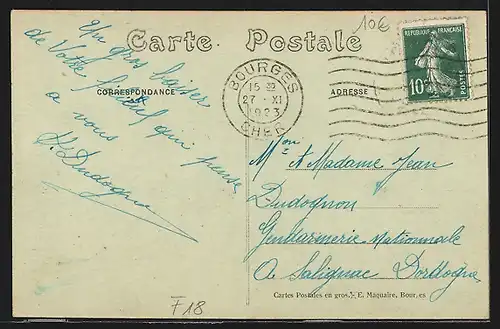 10€
Carte Postale
CORRESPONDANCE
ADRESSE
RÉPUBLIQUE FRANÇAISE
10c
POSTES
BOURGES
15 30
27 - XI
1923
CHER
Un gros baiser
de Votre qui pense
a vous
Dudognon
Mon & Madame Jean
Dudognon
Gendarmerie Nationnale
A Salignac Dordogne
Cartes Postales en gros, E. Maquaire, Bourges
F18